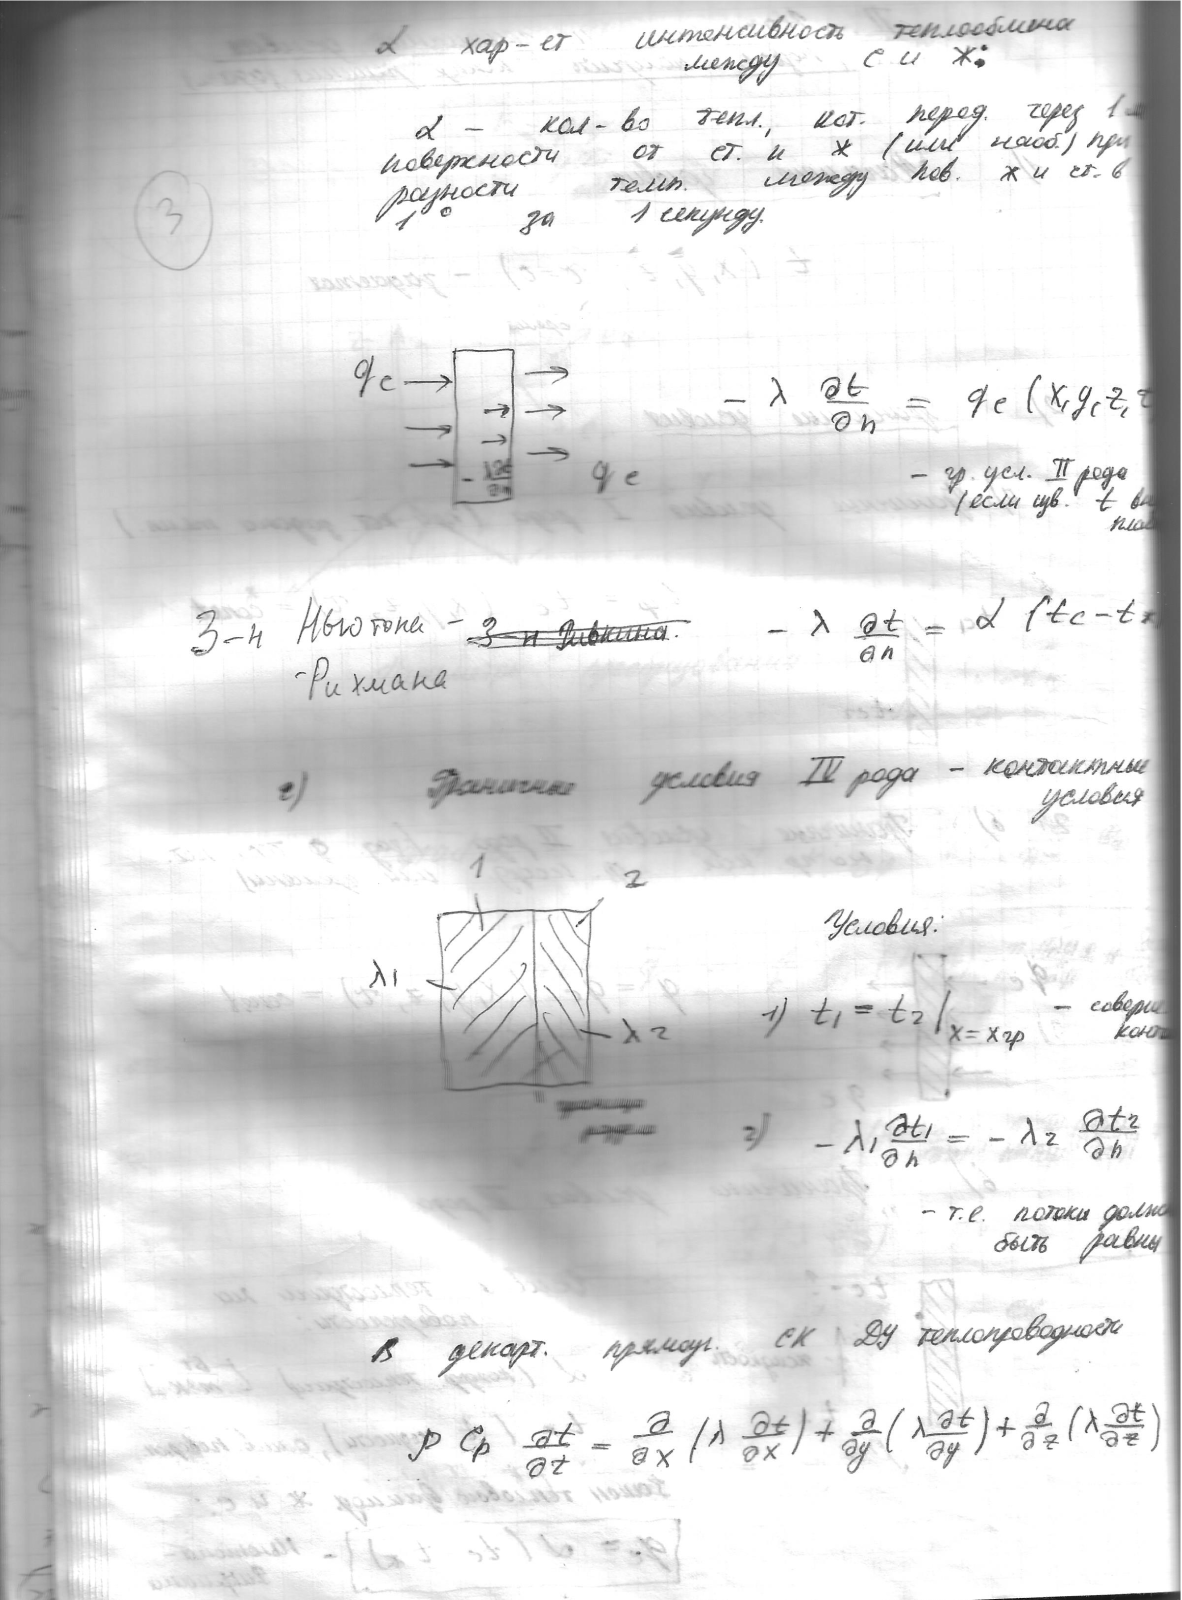 α хар-ет интенсивность теплообмена
между с и ж:
α – кол-во тепл., кот. перед. через 1 м
поверхности от ст. и ж (или наоб.) при
разности темп. между пов. ж и ст. в
1° за 1 секунду.
3
qc
- λ ∂t/∂n = qc (x, y, z, τ
- λ ∂t/∂n
qc
- гр. усл. II рода
(если изв. t
З-н Ньютона -
-Рихмана
- λ ∂t/∂n = α (tc - tж
г) Граничные условия IV рода – контактные
условия
1 2
Условия:
λ1
λ2
1) t1 = t2 |x = xгр - соверш
конт
граница
раздела
2) - λ1 ∂t1/∂n = - λ2 ∂t2/∂n
- т.е. потоки должн
быть равны
В декарт. прямоуг. СК ДУ теплопроводности
ρ Cp ∂t/∂τ = ∂/∂x (λ ∂t/∂x) + ∂/∂y (λ ∂t/∂y) + ∂/∂z (λ ∂t/∂z)